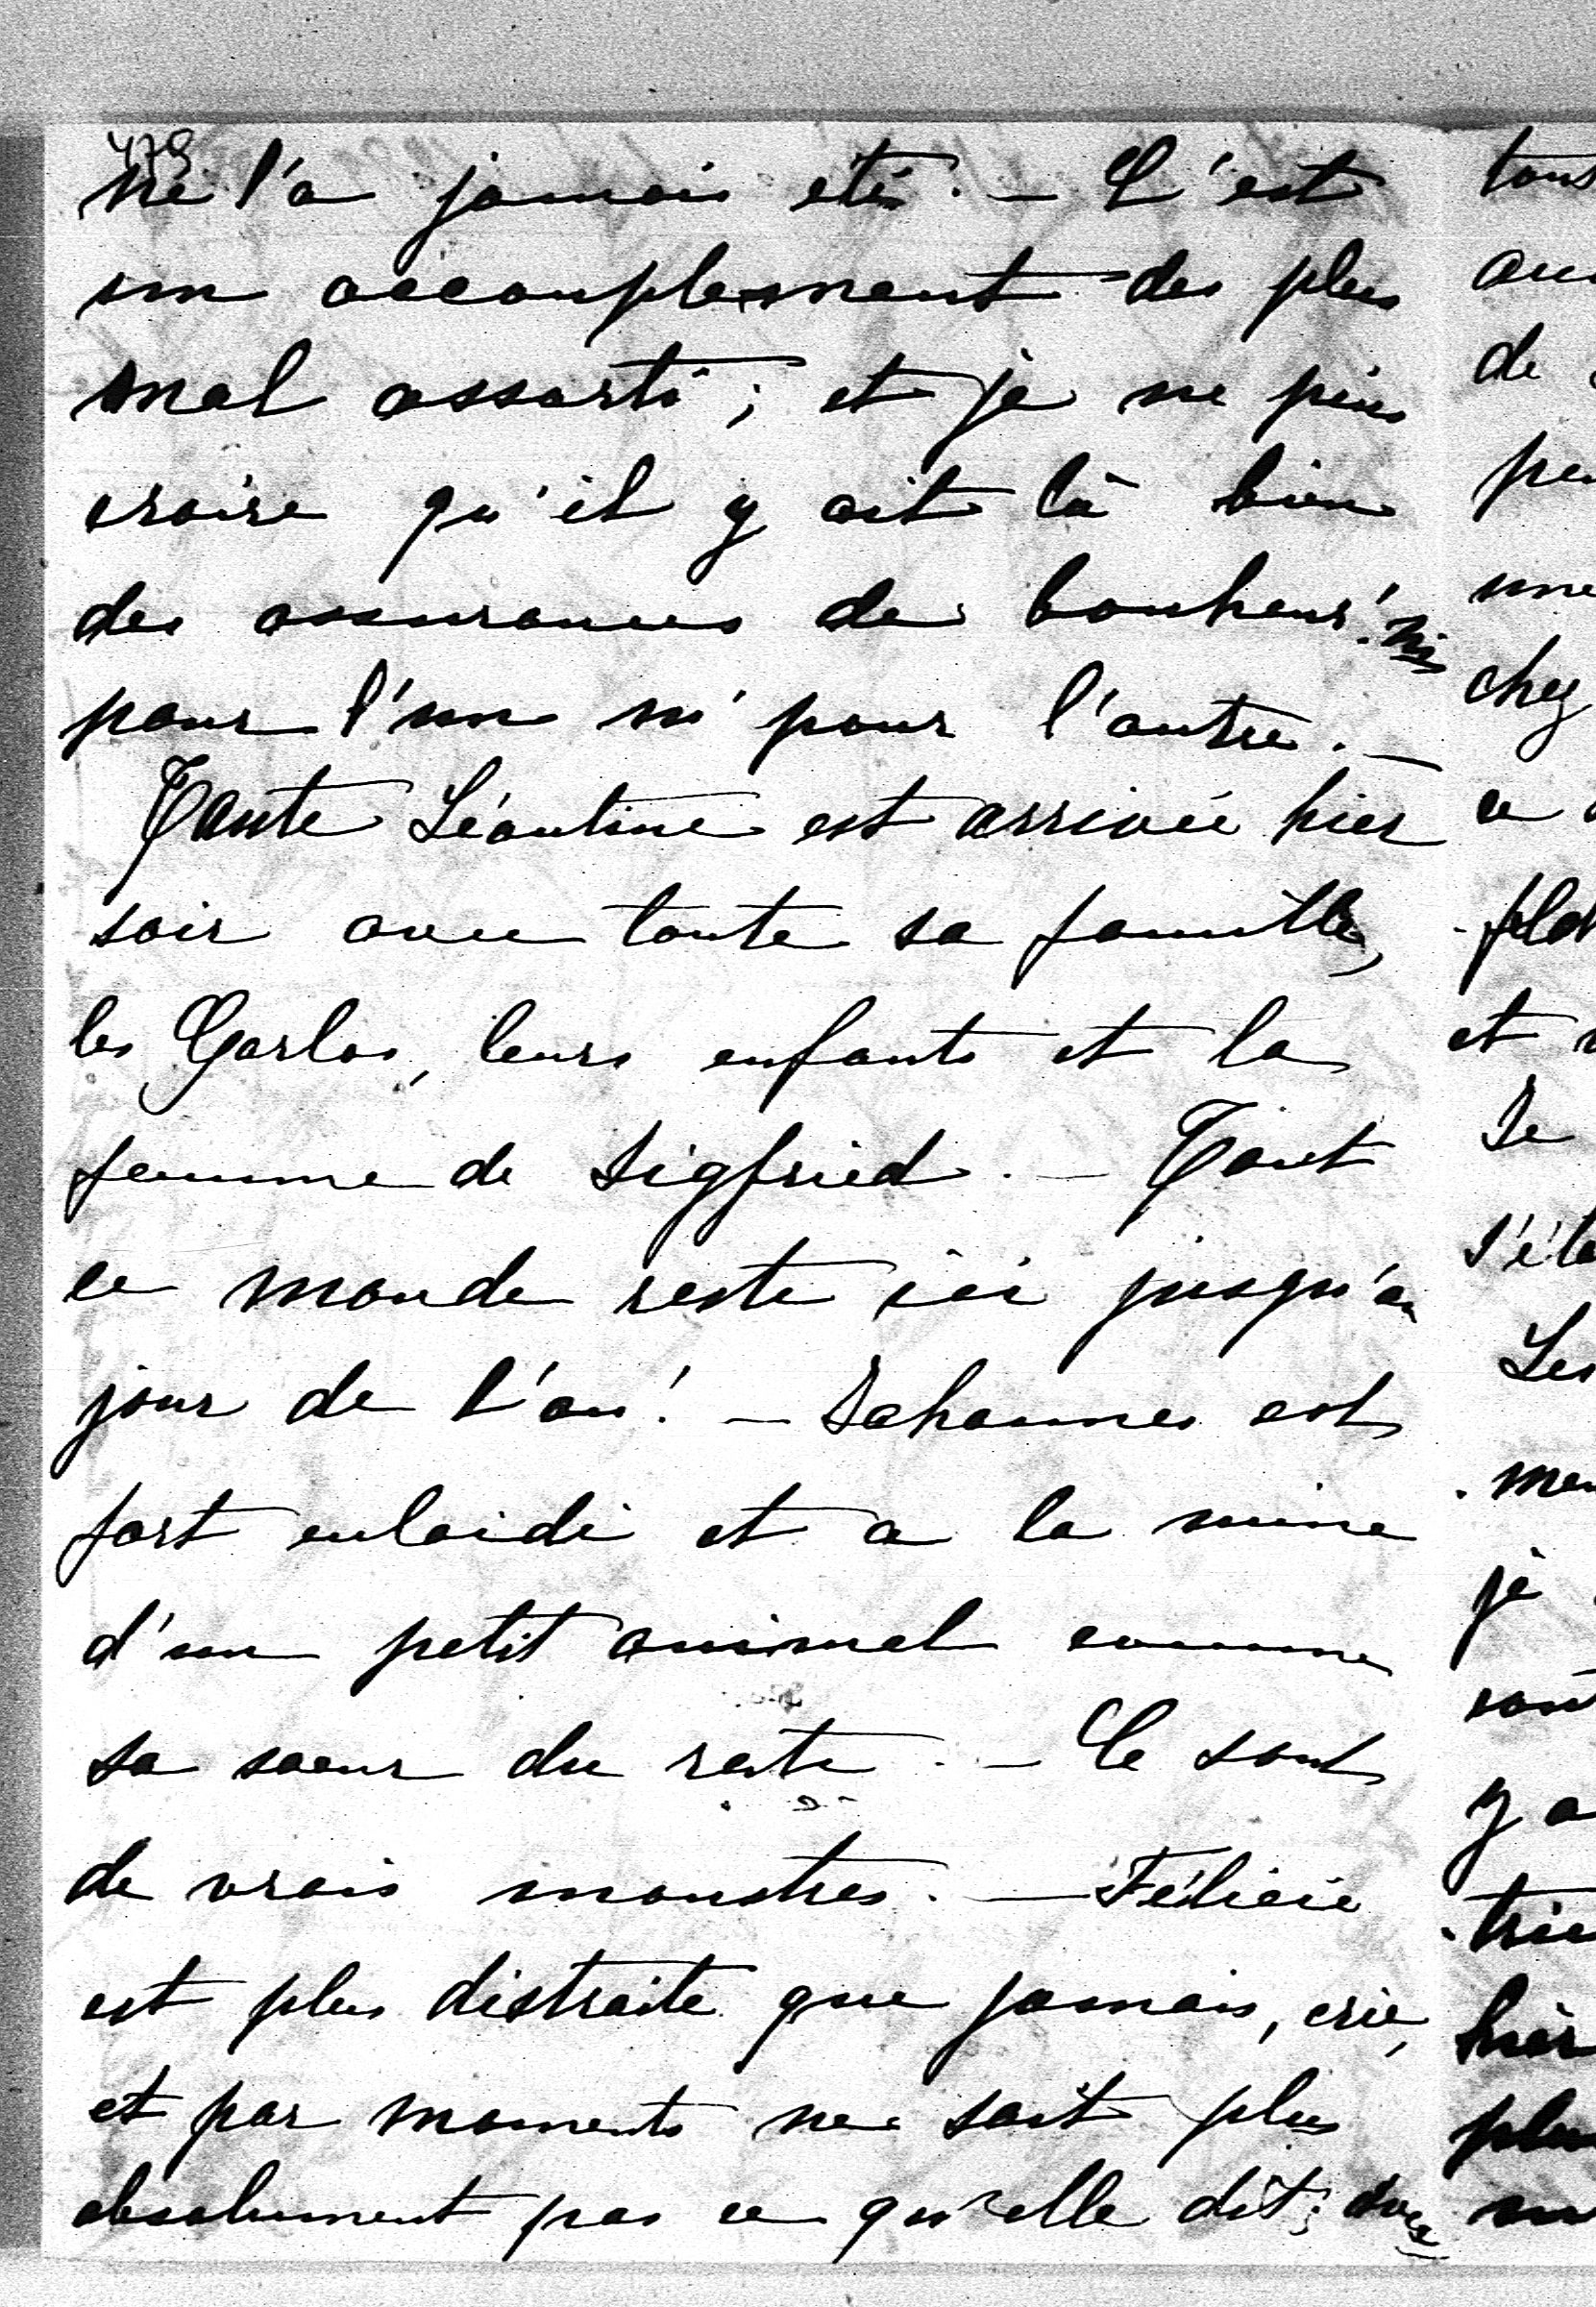 479
ne l'a jamais été. — C'est
un accouplement des plus
mal assorti; et je ne puis
croire qu'il y ait là bien
des assurances de bonheur! ni
pour l'un ni pour l'autre. —
Tante Léontine est arrivée hier
soir avec toute sa famille,
les Carlos, leurs enfants et la
femme de Sigfried. — Tout
ce monde reste ici jusqu'au
jour de l'an! — Johannes est
fort enlaidi et a la mine
d'un petit animal comme
sa soeur du reste. — Ce sont
de vrais monstres. — Félicie
est plus distraite que jamais, crie,
et par moments ne sait plus
absolument pas ce qu'elle dit;
tous
de
une
chez
et
Je
Les
je
y a
hier